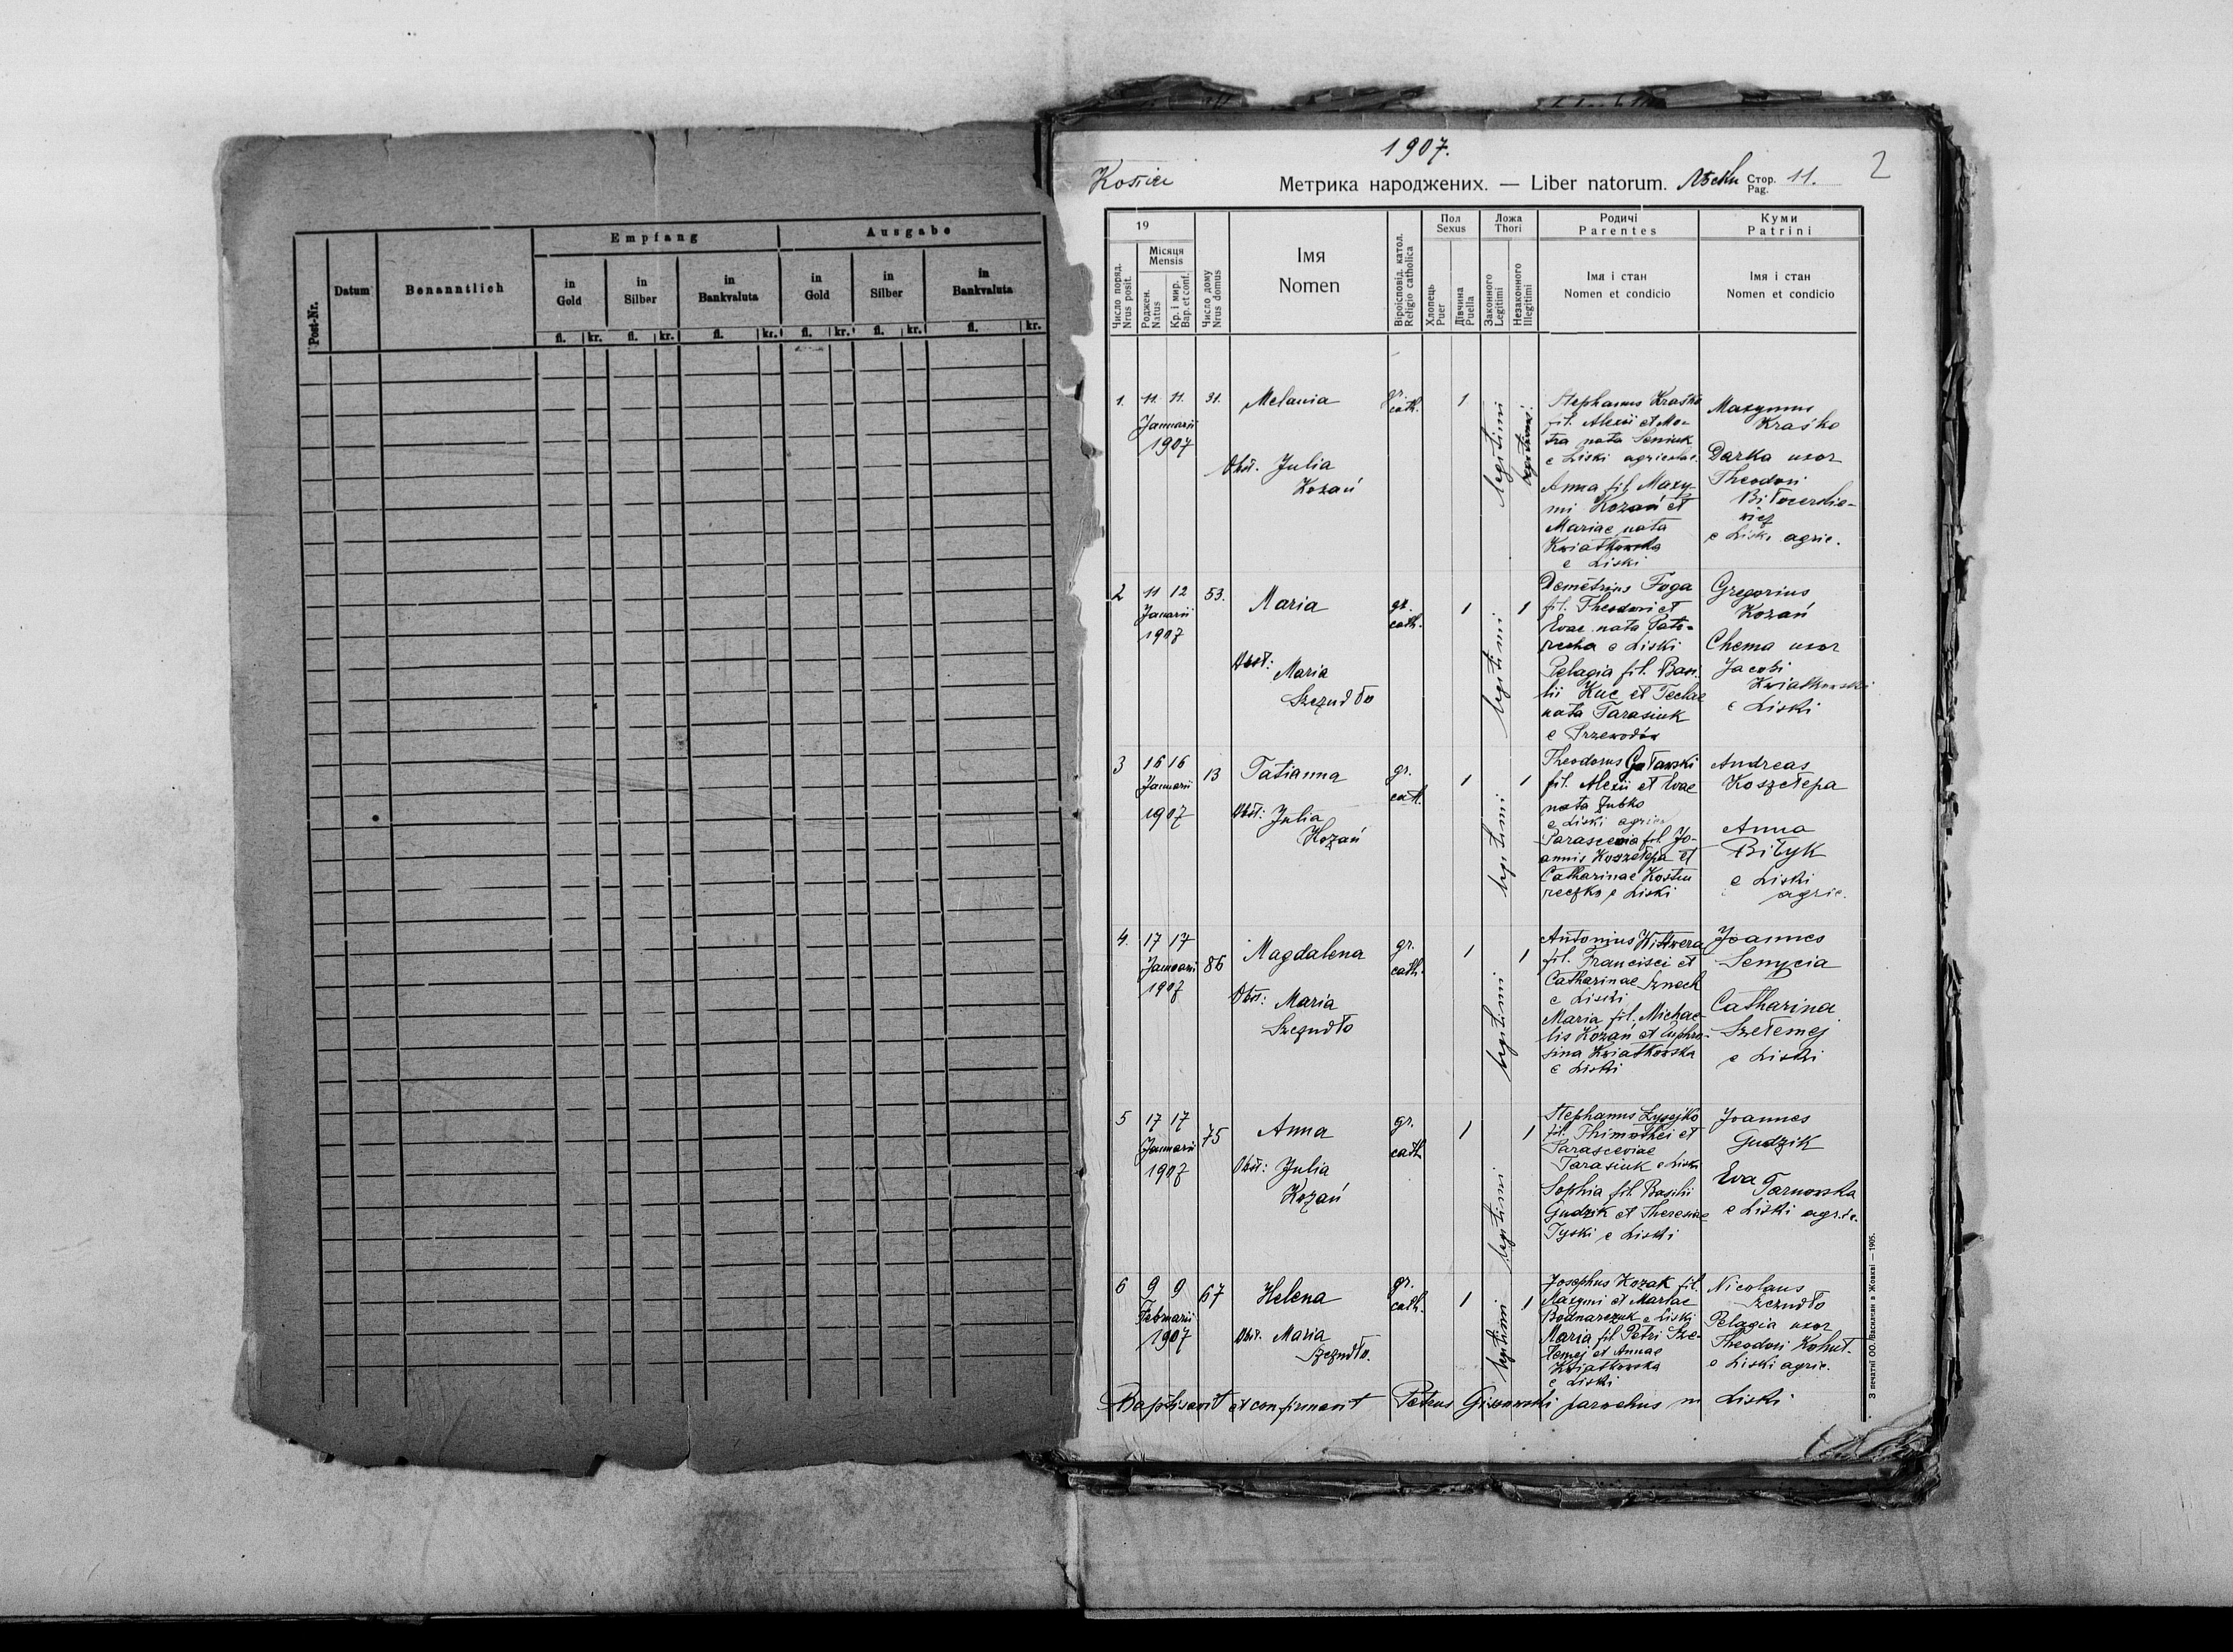 Empfang
Ausgabe
Post-Nr.
Datum
Benanntlich
in Gold
in Silber
in Bankvaluta
in Gold
in Silber
in Bankvaluta
fl. kr. fl. kr. fl. kr. fl. kr. fl. kr. fl. kr.
1907.
2
Метрика народжених. — Liber natorum.
Стор. Pag. 11.
19
Число поряд.
Nrus posit.
Місяця
Mensis
Роджен.
Natus
Кр. і мир.
Bap. et conf.
Число дому
Nrus domus
Імя
Nomen
Віроісповід. катол.
Religio catholica
Пол
Sexus
Хлопець
Puer
Дівчина
Puella
Ложа
Thori
Законного
Legitimi
Незаконного
Illegitimi
Родичі
Parentes
Імя і стан
Nomen et condicio
Куми
Patrini
Імя і стан
Nomen et condicio
1. 11. 11. 31. Melania gr. cath. 1 legitimi
Januarii
1907
Obst. Julia
Kozań
Stephanus Kraśko
fil. Alexii et Mo-
tra nata Seniuk
e Liski agricolae.
Anna fil. Maxy-
mi Kozań et
Mariae nata
Kwiatkowska
e Liski
Maxymus
Kraśko
Darka uxor
Theodori
e Liski agric.
2 11 12 53. Maria gr. cath. 1 legitimi 1
Januarii
1907
Obst: Maria
Szczudło
Demetrius Foga
fil. Theodori et
Evae nata
e Liski
Pelagia fil. Basi-
lii Kuc et Teclae
nata Tarasiuk
e Przewodów
Gregorius
Kozań
Chema uxor
Jacobi
Kwiatkowski
e Liski
3 16 16 13 Tatianna gr. cath. 1 legitimi 1
Januarii
1907
Obst: Julia
Kozań
Theodorus Gatawski
fil. Alexii et Evae
nata Zubko
e Liski agric.
Parascevia fil. Jo-
annis Koszełepa et
Catharinae
e Liski
Andreas
Koszełepa
Anna
Biłyk
e Liski
agric.
4. 17 17 86 Magdalena gr. cath. 1 legitimi 1
Januarii
1907
Obst: Maria
Szczudło
Antonius
fil. Francisci et
Catharinae
e Liski
Maria fil. Michae-
lis Kozań et Euphro-
sina Kwiatkowska
e Liski
Joannes
Senycia
Catharina
Szełemej
e Liski
5 17 17 75 Anna gr. cath. 1 legitimi 1
Januarii
1907
Obst: Julia
Kozań
Stephanus
fil. Thimothei et
Parasceviae
Tarasiuk e Liski
Sophia fil. Basilii
Gudzik et Theresiae
Tyski e Liski
Joannes
Gudzik
Eva Tarnowska
e Liski agric.
6 9 9 67 Helena gr. cath. 1 legitimi 1
Februarii
1907
Obst. Maria
Szczudło.
Josephus Kozak fil.
Maxymi et Mariae
Bodnarczuk e Liski
Maria fil. Petri Sze-
łemej et Annae
Kwiatkowska
e Liski
Nicolaus
Szczudło
Pelagia uxor
Theodosi Kohut.
e Liski agric.
Baptisavit et confirmavit Petrus parochus in Liski
З печатні ОО. Василиян в Жовкві — 1905.